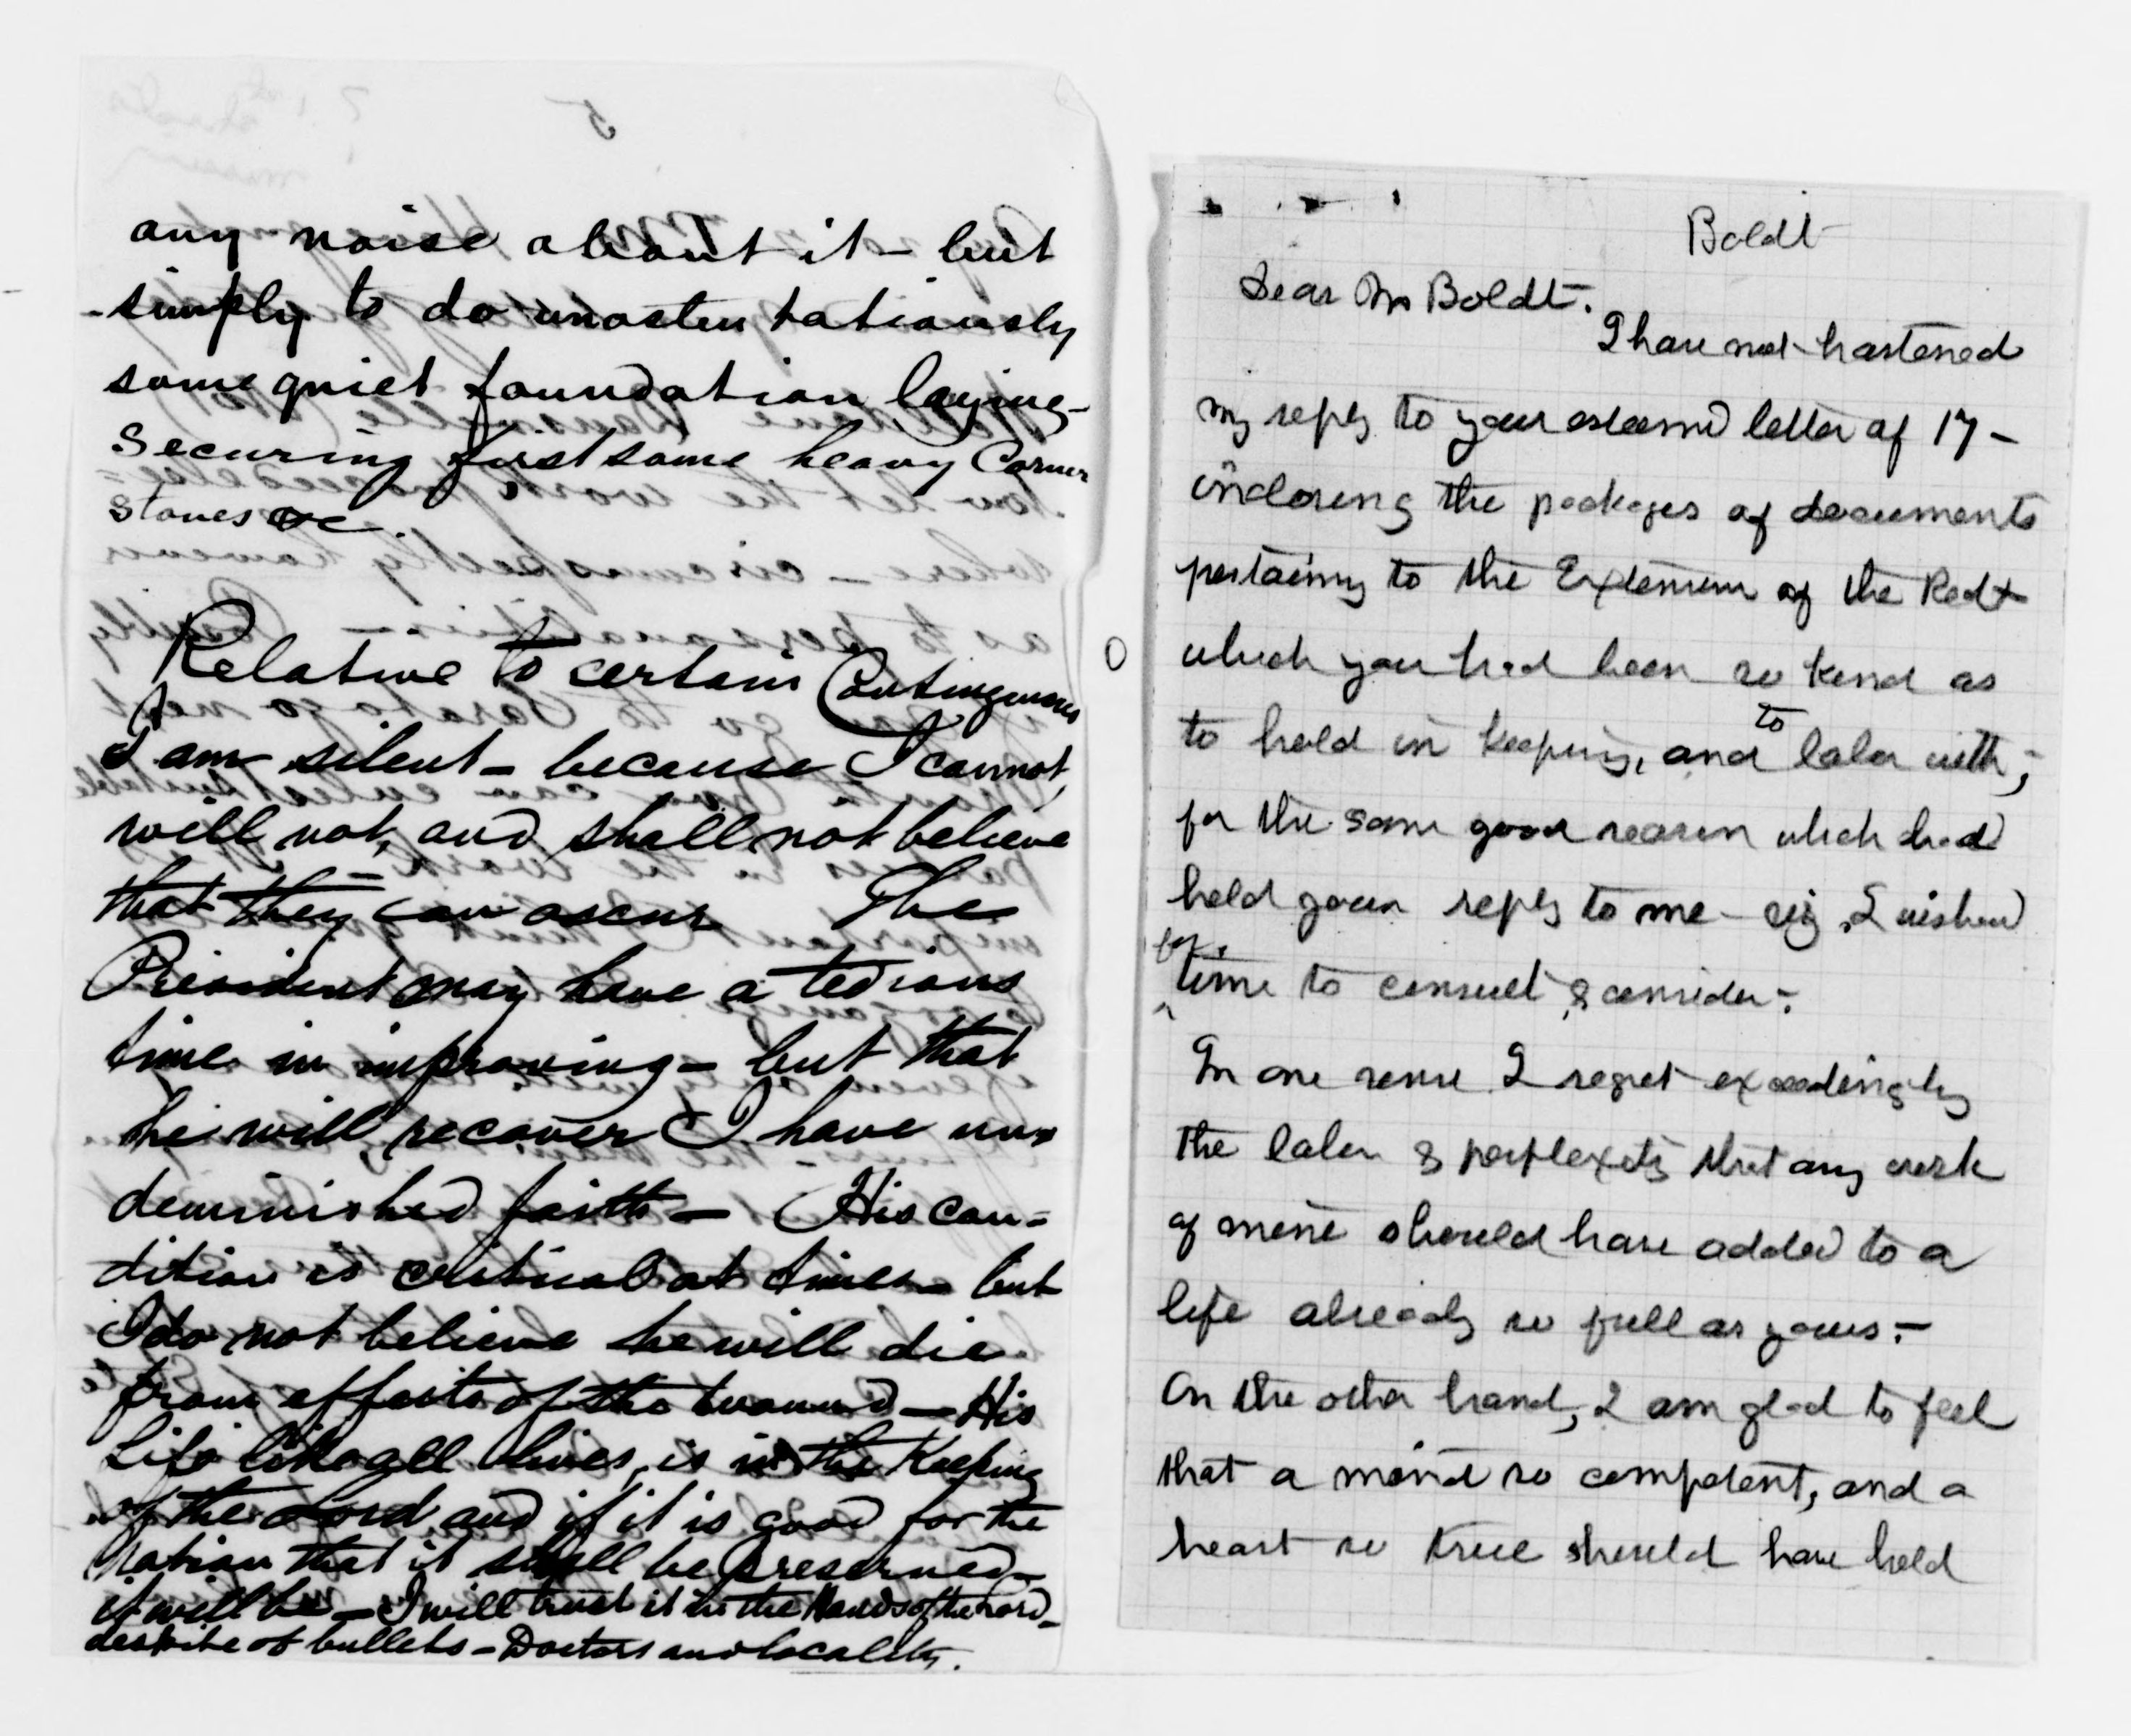 5
any noise about it – but
simply to do unosten tatiously
some quiet foundation laying –
Securing first some heavy Corner
stones &c.
Relative to certain Contingencies
I am silent – because I cannot,
will not, and shall not believe
that they can occur The
President may have a tedious
time in improving – but that
he will recover I have un=
deminished faith – His con=
dition is critical at times – but
I do not believe he will die
from effects of the wound – His
Life like all lives, is in the Keeping
of the Lord and if it is good for the
nation that it shall be preserved –
it will be – I will trust it in the Hands of the Lord –
despite of bullets – Doctors and locality.
Boldt
Dear Mr Boldt.
I have not hastened
my reply to your esteemed letter of 17 –
inclosing the packages of documents
pertaining to the Extension of the Red +
which you had been so kind as
to hold in keeping, and to labor with,
for the same good reason which had
held your reply to me – viz, I wished
for time to consult & consider –
In one sense I regret exceedingly
the labor & perplexity that any work
of mine should have added to a
life already so full as yours. –
On the other hand, I am glad to feel
that a mind so competent, and a
heart so true should have held